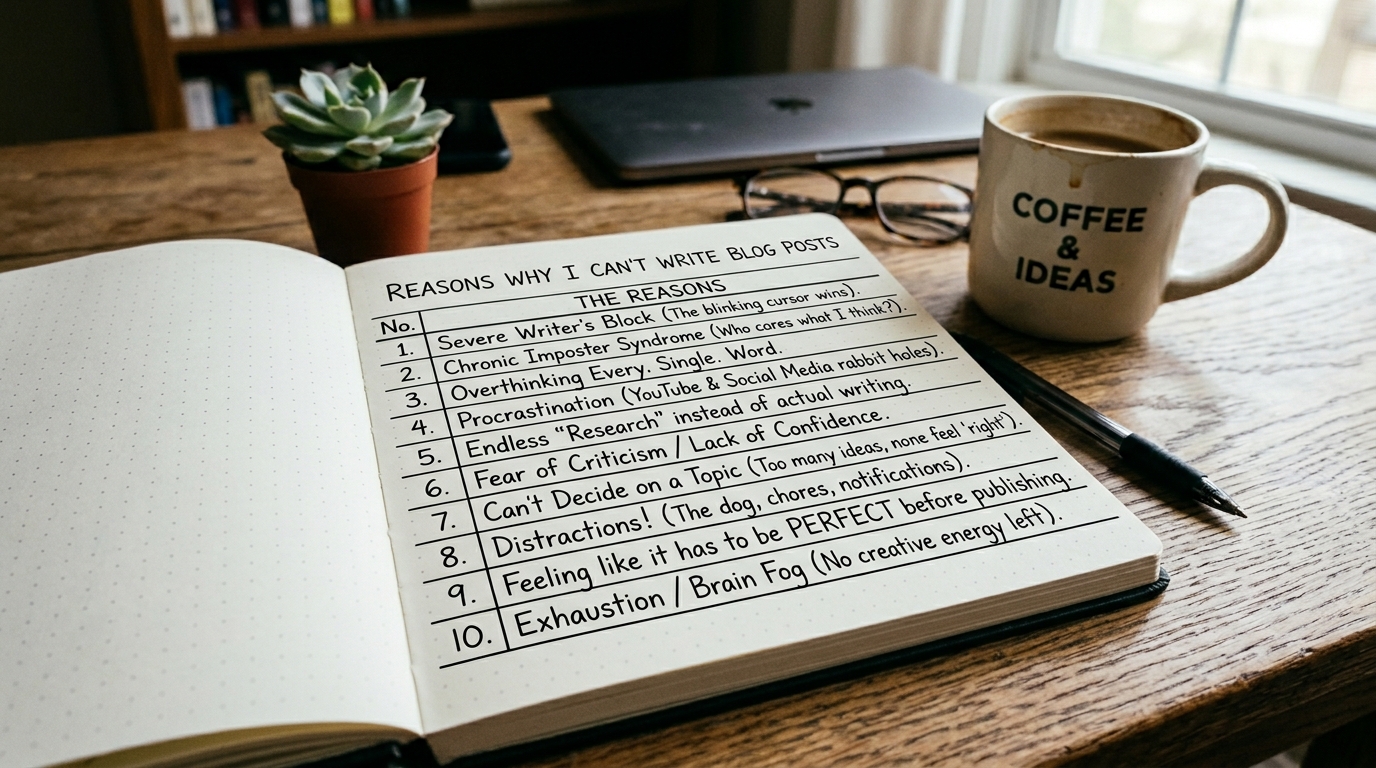 REASONS WHY I CAN'T WRITE BLOG POSTS
No. THE REASONS
1. Severe Writer's Block (The blinking cursor wins).
2. Chronic Imposter Syndrome (Who cares what I think?).
3. Overthinking Every. Single. Word.
4. Procrastination (YouTube & Social Media rabbit holes).
5. Endless "Research" instead of actual writing.
6. Fear of Criticism / Lack of Confidence.
7. Can't Decide on a Topic (Too many ideas, none feel 'right').
8. Distractions! (The dog, chores, notifications).
9. Feeling like it has to be PERFECT before publishing.
10. Exhaustion / Brain Fog (No creative energy left).
COFFEE
&
IDEAS